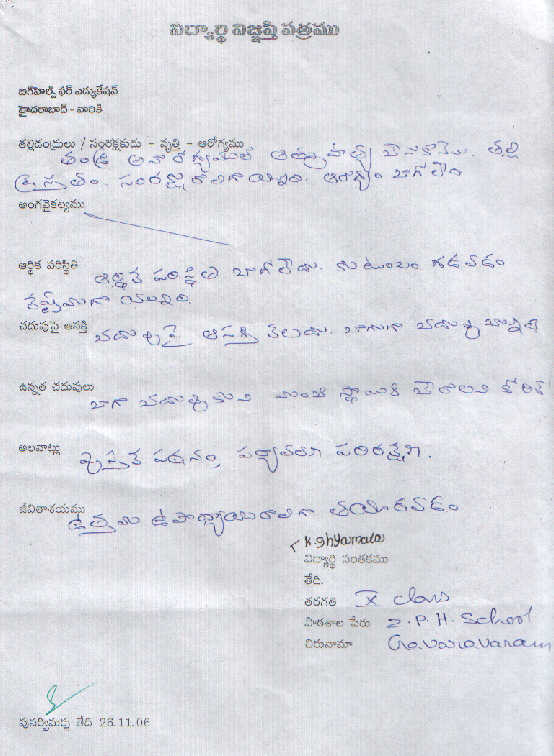 విద్యార్థి విజ్ఞప్తి పత్రము
బిగ్‌హెల్ప్ ఫర్ ఎడ్యుకేషన్
హైదరాబాద్ - వారికి
తల్లిదండ్రులు / సంరక్షకుడు - వృత్తి - ఆరోగ్యము
తండ్రి అనారోగ్యముతో తల్లి
ప్రస్తుతం. ఆరోగ్యం బాగోలేదు
అంగవైకల్యము
ఆర్థిక పరిస్థితి ఆర్థిక పరిస్థితి బాగోలేదు. కుటుంబం గడవడం
కష్టముగా
చదువుపై ఆసక్తి చదువుపై ఆసక్తి కలదు. బాగుగా
ఉన్నత చదువులు బాగా చదువుకుని మంచి స్థాయికి చేరాలని కోరిక
అలవాట్లు పుస్తక పఠనం, పర్యావరణ పరిరక్షణ.
జీవితాశయము ఉత్తమ ఉపాధ్యాయురాలిగా తయారవడం
K. Shyamala
విద్యార్థి సంతకము
తేది.
తరగతి X class
పాఠశాల పేరు Z.P.H. School
చిరునామా Gavaravaram
పునర్విమర్శ తేది 26.11.06